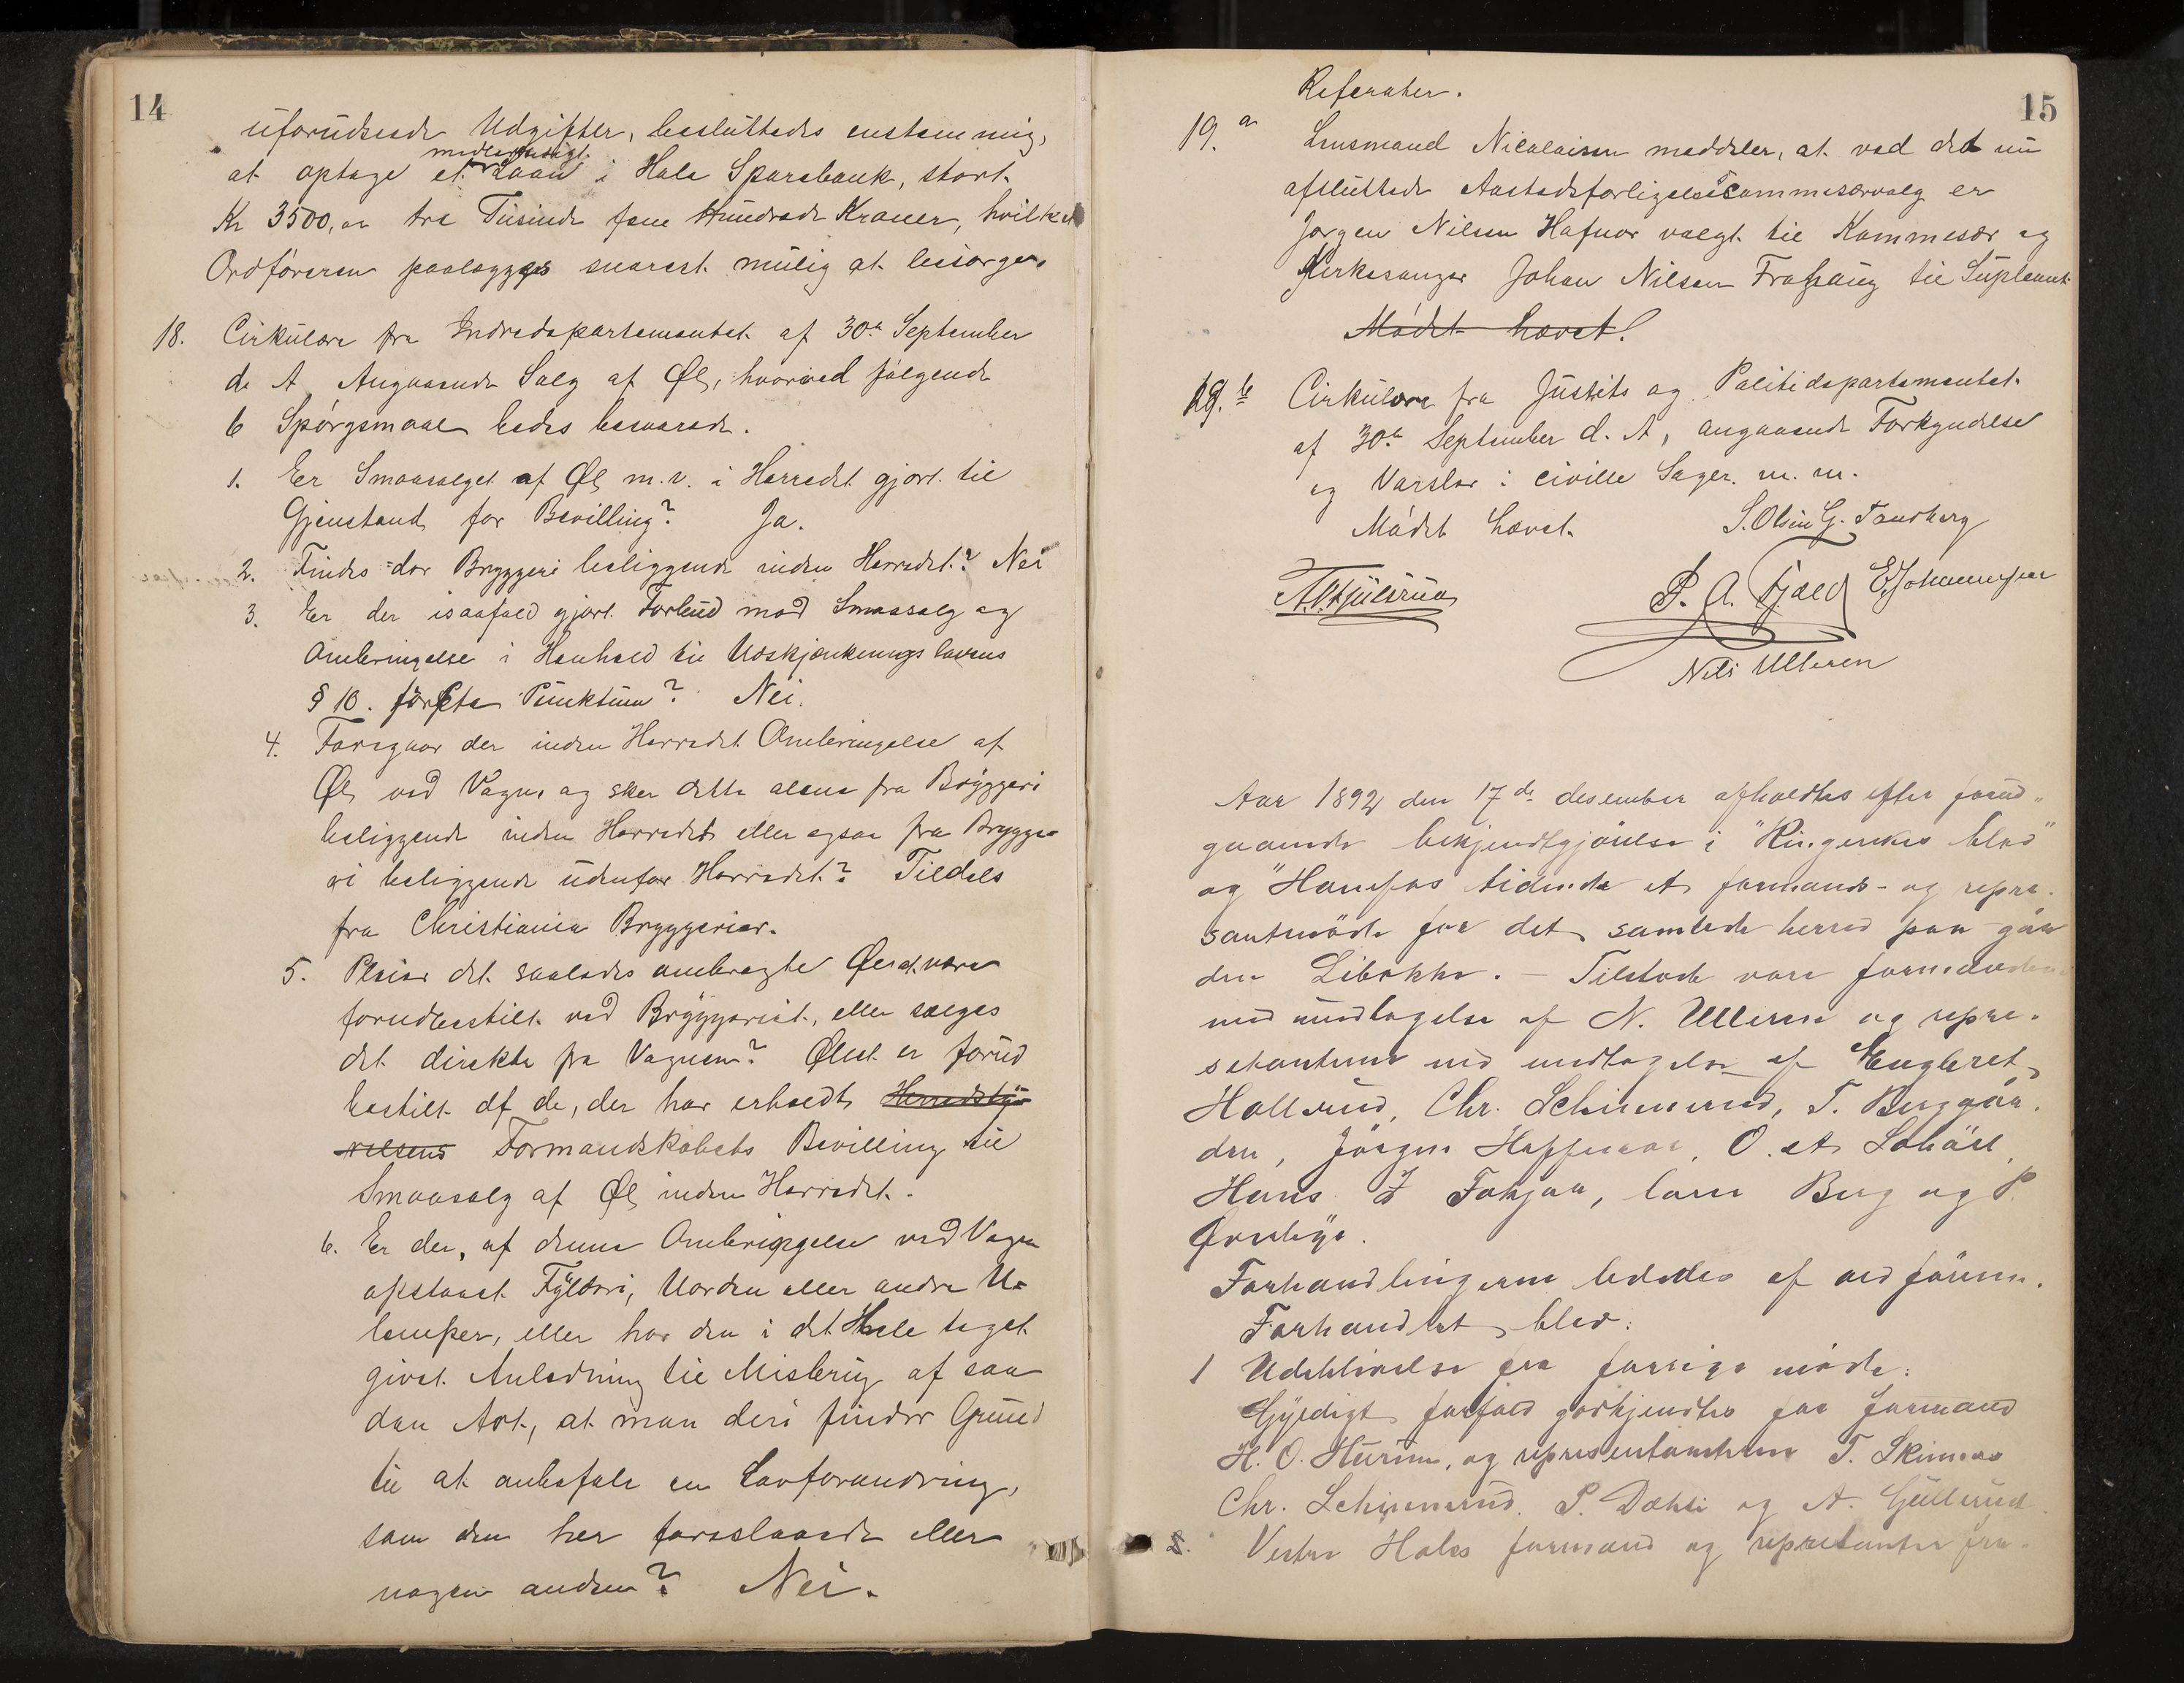 14
uforudseede Udgifter, besluttedes enstemmig,
at optage et midlertidigt Laan i Hole Sparebank, stort
Kr 3500, tre Tusinde fem Hundrede Kroner, hvilket
Ordføreren paalægges snarest mulig at besørge.
18. Cirkulære fra Indredepartementet af 30te September
d. A. Angaaende Salg af Øl, hvorved følgende
6 Spørgsmaal bedes besvarede.
1. Er Smaasalget af Øl m.v. i Herredet gjort til
Gjenstand for Bevilling? Ja.
2. Findes der Bryggeri beliggende inden Herredet? Nei
3. Er der isaafald gjort Forbud mod Smaasalg og
Ombringelse i Henhold til Udskjænkningslovens
§ 10. første Punktum? Nei.
4. Foregaar der inden Herredet Ombringelse af
Øl ved Vogn, og sker dette alene fra Bryggeri
beliggende inden Herredet eller ogsaa fra Brygge-
ri beliggende udenfor Herredet? Tildels
fra Christiania Bryggerier.
5. Pleier det saaledes ombragte Øl at være
forudbestilt ved Bryggeriet, eller sælges
det direkte fra Vognen? Ølet er forud
bestilt af de, der har erholdt Herredsty-
relsens Formandskabets Bevilling til
Smaasalg af Øl inden Herredet.
6. Er der, af denne Ombringelse ved Vogn
opstaaet Fylderi, Uorden eller andre U-
lemper, eller har den i det Hele taget
givet Anledning til Misbrug af saa-
dan Art, at man deri finder Grund
til at anbefale en Lovforandring,
som den her foreslaaede eller
nogen anden? Nei.
15
Referater.
19. a Lensmand Nicolaisen meddeler, at ved det nu
afsluttede Aastedsforligelseskommissærvalg er
Jørgen Nilsen Hafnor valgt til Kommesær og
Kirkesanger Johan Nilsen til Supleant
Mødet hævet!
19. b Cirkulære fra Justits og Politidepartementet
af 30te September d. A, angaaende Forkyndelse
og Varsler i civille Sager. m. m.
Mødet hævet. S. Olsen G. Tandberg
P. A. Fjeld E. Johannesen
Nils Ulleren
Aar 1892 den 17de desember afholdtes efter forud-
gaaende bekjendtgjørelse i "Ringerikes blad"
og "Hønefos tidende et formands- og repre-
santmøde for det samlede herred paa gaar-
den Libakke. – Tilstede vare formændene
med undtagelse af N. Ulleren og repre-
setanterne med undtagelse af Engebret
Hollerud, Chr. Schirmerud, T. Berggaar-
den, Jörgen Haffnor, O. A
Hans, Lars Berg og P.
Forhandlingerne lededes af ordføreren.
Forhandlet blev:
1 Udeblivelse fra forrige møde:
Gyldigt forfald godkjendtes for formand
H. O. Hurum, og representanterne T.
Chr. Schirmerud. P. Dæhli og A. Gulserud
2. Vestre Holes formænd og represtanter fra-